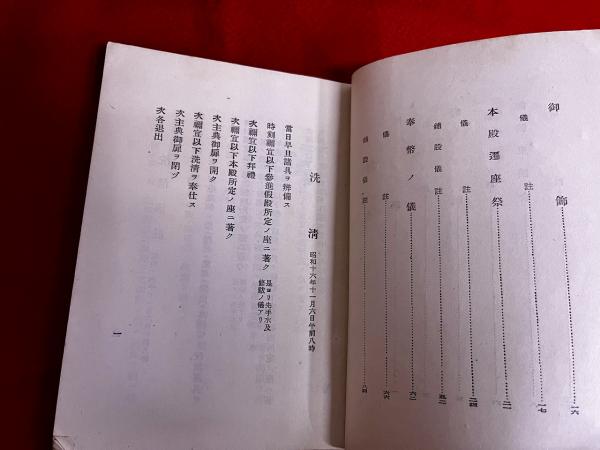 御飾……一六
儀註……一七
本殿遷座祭……二二
儀註……二四
鋪設儀註……五二
奉幣ノ儀……六二
儀註……六六
鋪設儀註……八四
洗清 昭和十六年十一月六日午前八時
當日早旦諸具ヲ辨備ス
時刻禰宜以下參進假殿所定ノ座ニ著ク 是ヨリ先手水及修祓ノ儀アリ
次禰宜以下拜禮
次禰宜以下本殿所定ノ座ニ著ク
次主典御扉ヲ開ク
次禰宜以下洗清ヲ奉仕ス
次主典御扉ヲ閉ヅ
次各退出
一